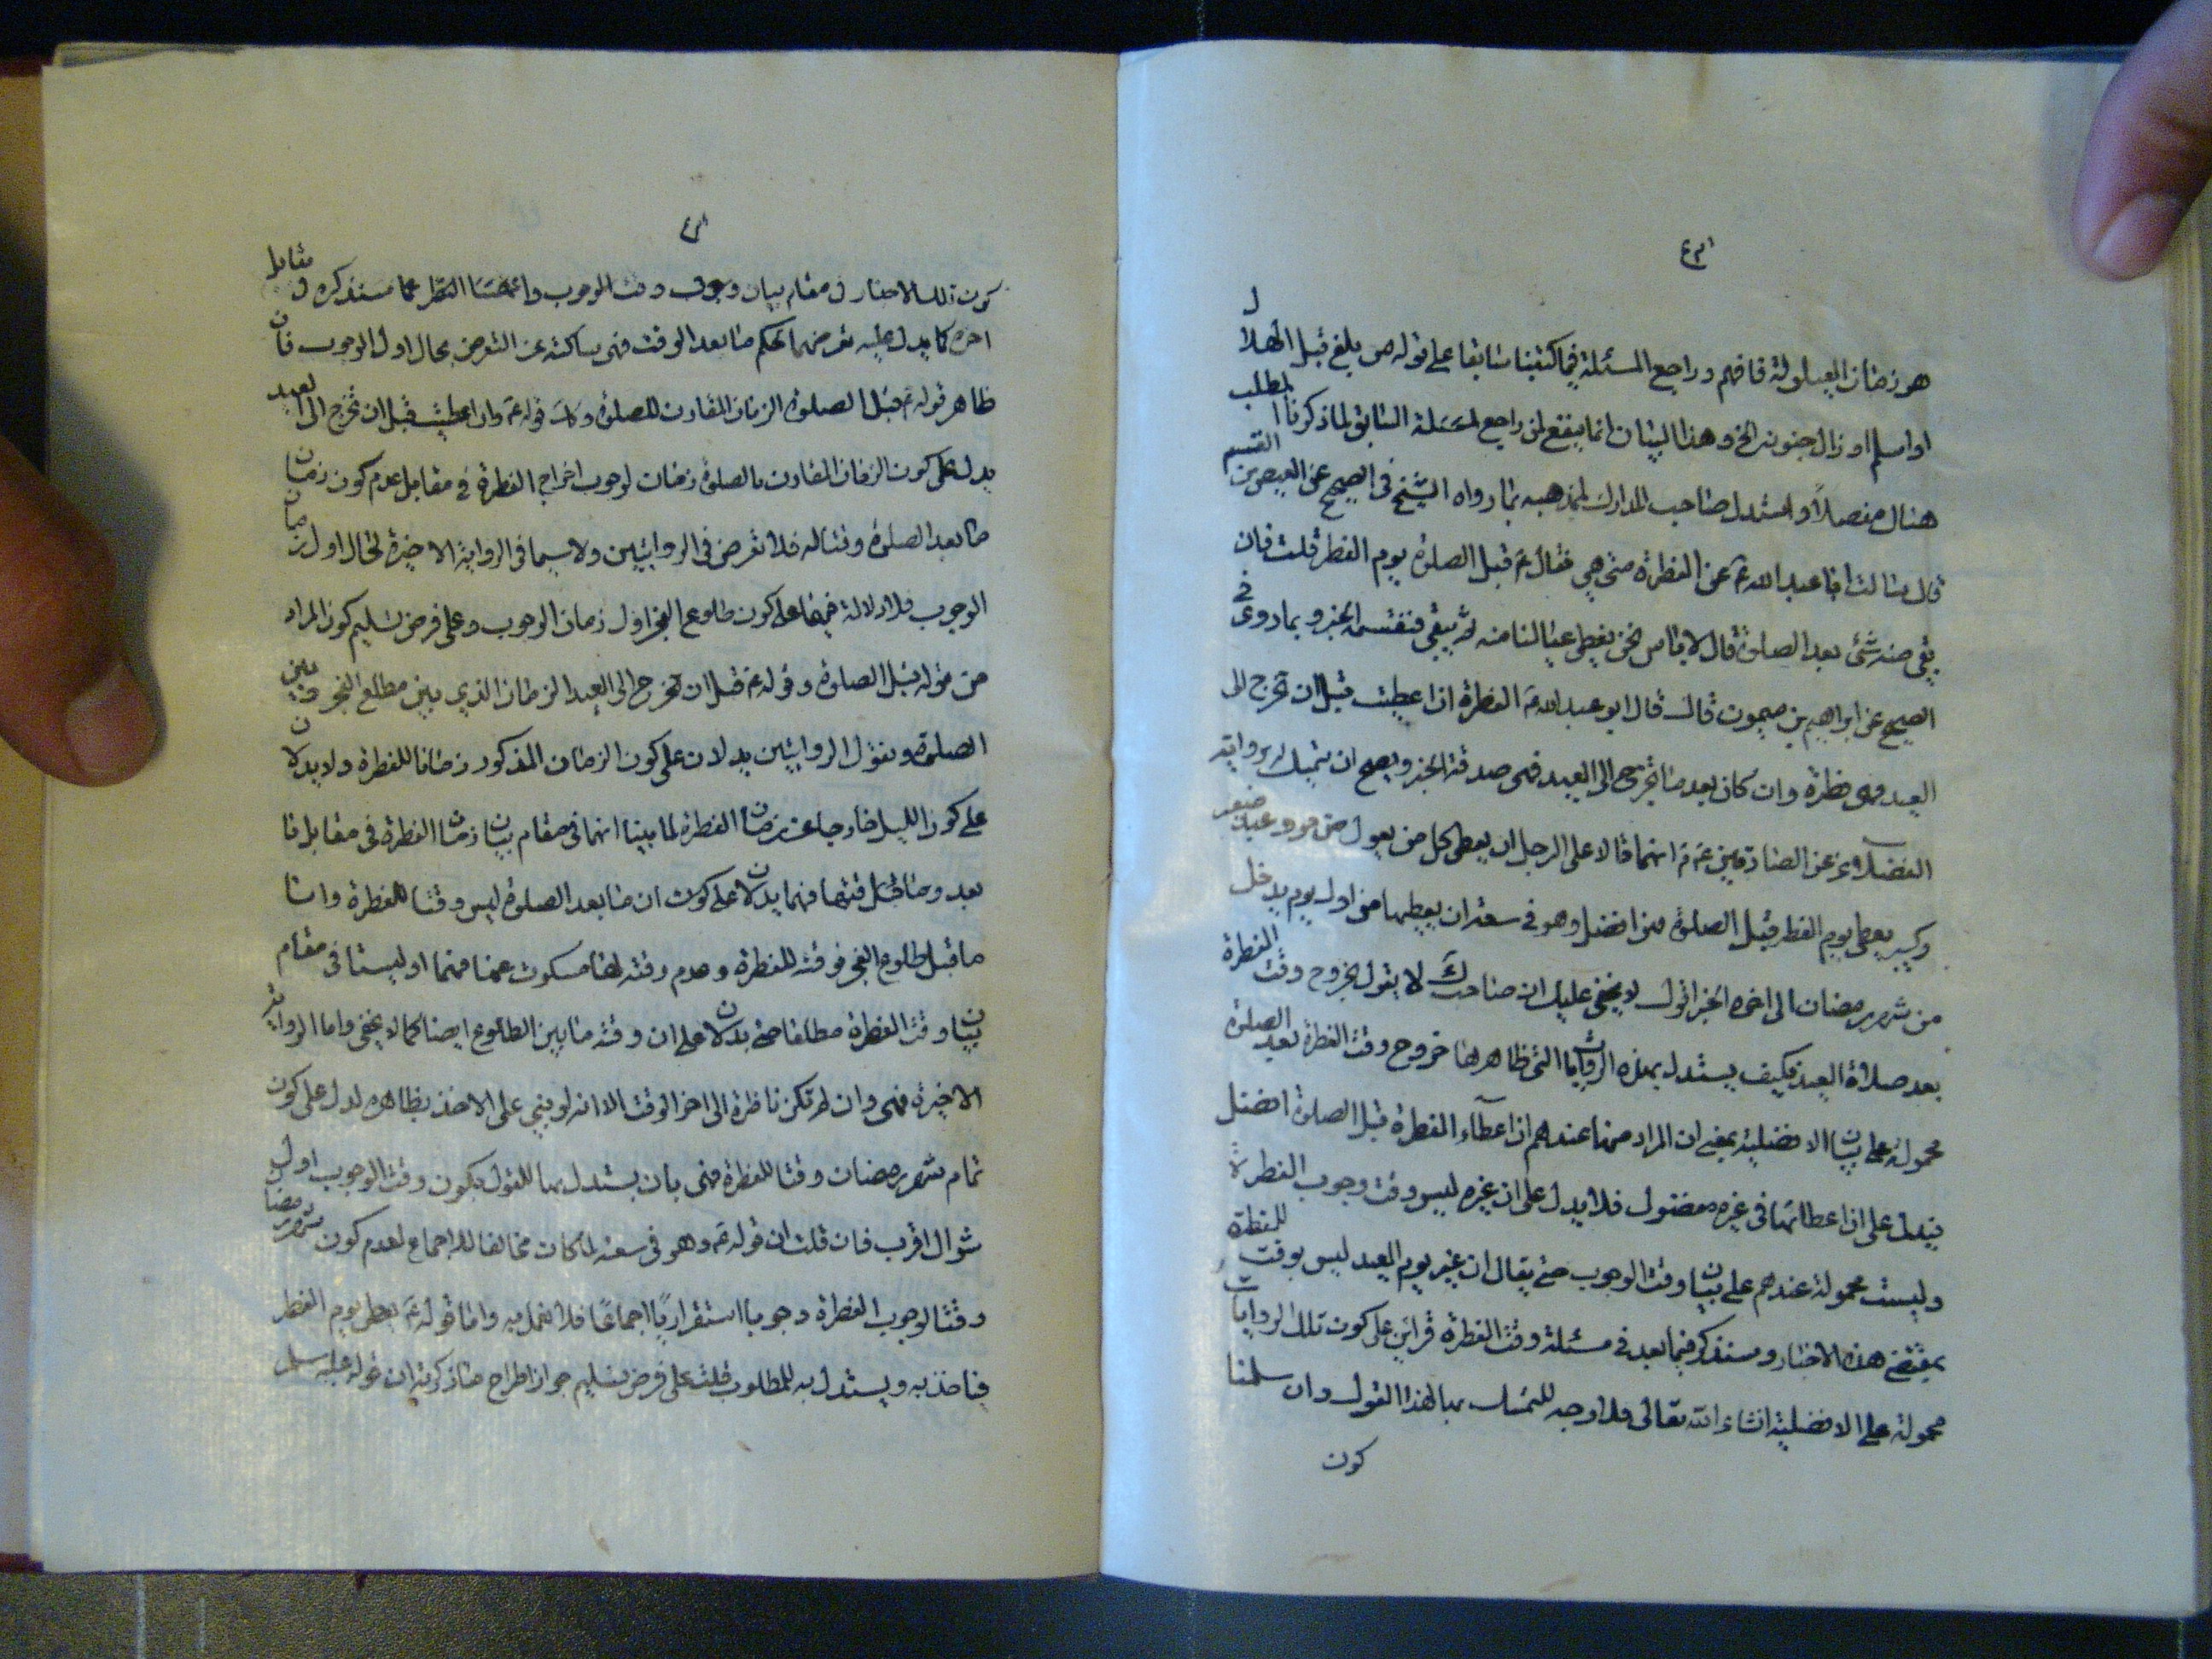 هو زمان العيلولة فافهم وراجع المسئلة فيما كتبنا سابقا على قوله من بلغ قبل الهلال
او اسلم او زال جنونه الخ وهذا البيان انما ينفع لمن راجع لمسئلة السابق لما ذكرنا المطلب
هناك مفصلاً واستدل صاحب المدارك لمذهبه بما رواه الشيخ فى الصحيح عن العيص بن القسم
قال سالت ابا عبد الله ع عن الفطرة متى هي فقال ع قبل الصلوة يوم الفطر قلت فان
بقى منه شئ بعد الصلوة قال لا باس نحن نعطى عيالنا منه ثم يبقى فنقسمه الخبر وبما روى فى
الصحيح عن ابراهيم بن ميمون قال قال ابو عبد الله ع الفطرة ان اعطيت قبل ان تخرج الى
العيد فهى فطرة وان كان بعد ما تخرج الى العيد فهى صدقة الخبر ويصح ان يتمسك له برواية
الفضلاء عن الصادقين ع انهما قالا على الرجل ان يعطى كل من يعول من حر وعبد صغير
وكبير يعطى يوم الفطر قبل الصلوة فهو افضل وهو فى سعة ان يعطيها من اول يوم يدخل
من شهر رمضان الى اخره الخبر اقول لا يخفى عليك ان صاحب ك لا يقول بخروج وقت الفطرة
بعد صلاة العيد فكيف يستدل بهذه الروايات التى ظاهرها خروج وقت الفطرة بعد الصلوة
محمولة على بيان الافضلية بمعنى ان المراد منها عندهم ان اعطاء الفطرة قبل الصلوة افضل
فيدل على ان اعطائها فى غيره مفضول فلا يدل على ان غيره ليس وقت وجوب الفطرة
وليست محمولة عندهم على بيان وقت الوجوب حتى يقال ان غير يوم العيد ليس بوقت للفطرة
بمقتضى هذه الاخبار وسنذكر فيما بعد فى مسئلة وقت الفطرة قراين على كون تلك الروايات
محمولة على الافضلية انشاء الله تعالى فلا وجه للتمسك بها لهذا القول وان سلمنا
كون
كون تلك الاخبار فى مقام بيان وقت الوجوب واغمضنا النظر عما سنذكره فى مقابل
اخره كما يدل عليه تعرضهما لحكم ما بعد الوقت فهى ساكتة عن التعرض بحال اول الوجوب فان
ظاهر قوله ع قبل الصلوة الزمان المقارن للصلوة وكك قوله ع وان اعطيت قبل ان تخرج الى العيد
يدل على كون الزمان المقارن بالصلوة زمان لوجوب اخراج الفطرة فى مقابل عدم كون زمان
ما بعد الصلوة وقتا له فلا تعرض فى الروايتين ولا سيما فى الرواية الاخيرة لحال اول زمان
الوجوب فلا دلالة فيهما على كون طلوع الفجر اول زمان الوجوب وعلى فرض تسليم كون المراد
من قوله قبل الصلوة وقوله ع قبل ان تخرج الى العيد الزمان الذى بين مطلع الفجر وبين
الصلوة ونقول الروايتين يدلان على كون الزمان المذكور زمانا للفطرة ولا يدلان
على كون الليل خارجا عن زمان الفطرة لما بينا انهما فى مقام بيان زمان الفطرة فى مقابل ما
بعد وما قبل وقتها فهما يدلان على كون ان ما بعد الصلوة ليس وقتا للفطرة واما
ما قبل طلوع الفجر فوقته للفطرة وعدم وقته لها مسكوت عنها فيهما اوليستا فى مقام
بيان وقت الفطرة مطلقا حتى يدلان على ان وقته ما بين الطلوع ايضا كما لا يخفى واما الرواية
الاخيرة فهى وان لم تكن ناظرة الى اخر الوقت الا انه لو بنى على الاخذ بظاهره لدل على كون
تمام شهر رمضان وقتا للفطرة فهى بان يستدل بها للقول بكون وقت الوجوب اول
شوال اقرب فان قلت ان قوله ع وهو فى سعة لما كان مخالفا للاجماع لعدم كون شهر رمضان
وقتا لوجوب الفطرة وجوبا استقراريا اجماعا فلا نعمل به واما قوله ع يعطى يوم الفطر
فناخذ به ويستدل به للمطلوب قلت على فرض تسليم جواز اطراح ما ذكرته ان قوله عليه سلم